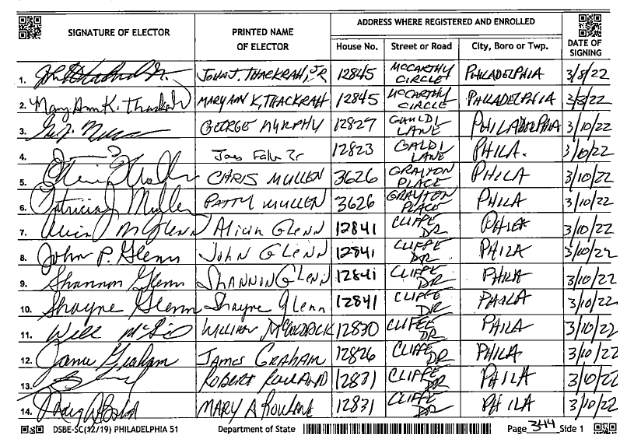 SIGNATURE OF ELECTOR PRINTED NAME OF ELECTOR ADDRESS WHERE REGISTERED AND ENROLLED DATE OF SIGNING
House No. Street or Road City, Boro or Twp.
1. JOHN J. THACKRAH, JR 12845 MCCARTHY CIRCLE PHILADELPHIA 3/8/22
2. Mary Ann K. Thackrah MARY ANN K. THACKRAH 12845 MCCARTHY CIRCLE PHILADELPHIA 3/8/22
3. GEORGE MURPHY 12827 LANE PHILADELPHIA 3/10/22
4. 12823 GALDI LANE PHILA. 3/10/22
5. CHRIS MULLEN 3626 GRAYTON PLACE PHILA 3/10/22
6. Patricia J Mullen PATTY MULLEN 3626 GRAYTON PLACE PHILA 3/10/22
7. Alicia M Glenn Alicia Glenn 12841 CLIFFE DR PHILA 3/10/22
8. John P. Glenn John Glenn 12841 CLIFFE DR PHILA 3/10/22
9. Shannon Glenn SHANNIN GLENN 12841 CLIFFE DR PHILA 3/10/22
10. Shayne Glenn Shayne Glenn 12841 CLIFFE DR PHILA 3/10/22
11. WILLIAM 12830 CLIFFE DR PHILA 3/10/22
12. James Graham JAMES GRAHAM 12826 CLIFFE DR PHILA 3/10/22
13. ROBERT ROWLAND 12831 CLIFFE DR PHILA 3/10/22
14. MARY A Rowland 12831 CLIFFE DR PHILA 3/10/22
DSBE-SC(12/19) PHILADELPHIA 51 Department of State Page 344 Side 1